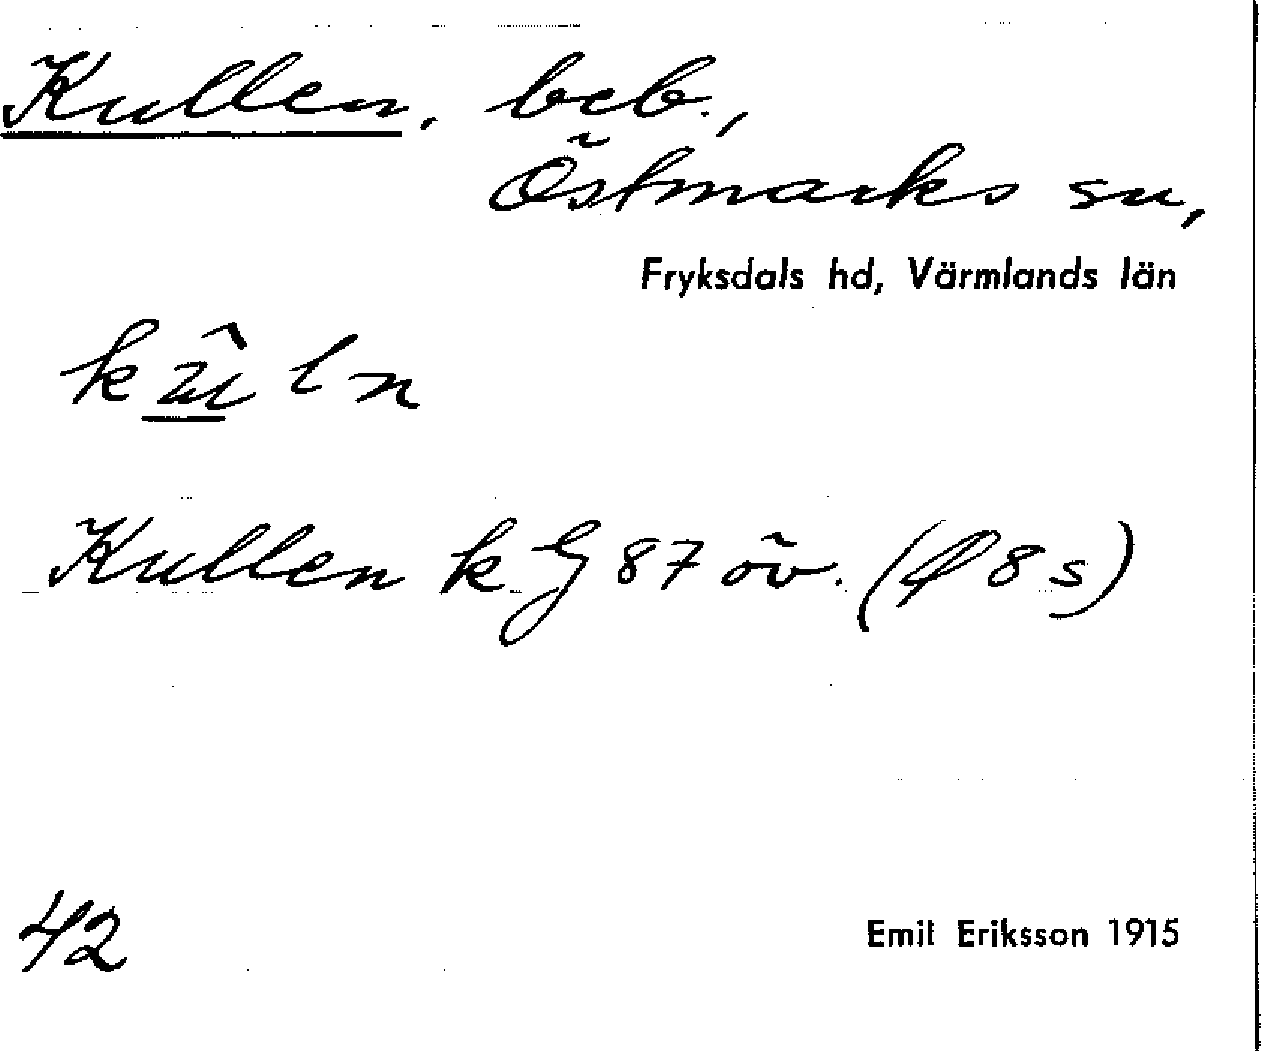 Kullen, beb.,
Östmarks sn,
Fryksdals hd, Värmlands län
Kullen k G 87 öv. (
42
Emil Eriksson 1915